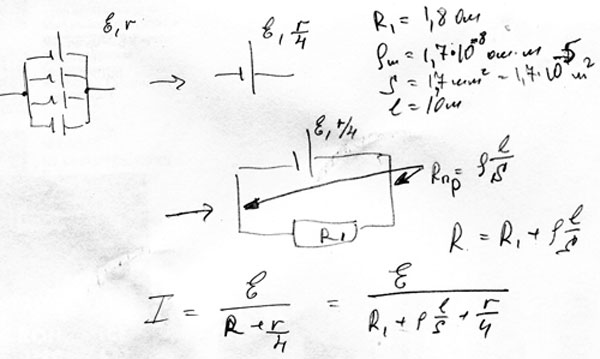 ℰ, r
ℰ, r/4
R₁ = 1,8 Ом
ρм = 1,7·10⁻⁸ Ом·м
S = 1,7 мм² = 1,7·10⁻⁵ м²
l = 10 м
ℰ, r/4
R₁
Rпр = ρ l/S
R = R₁ + ρ l/S
I = ℰ / (R + r/4) = ℰ / (R₁ + ρ l/S + r/4)